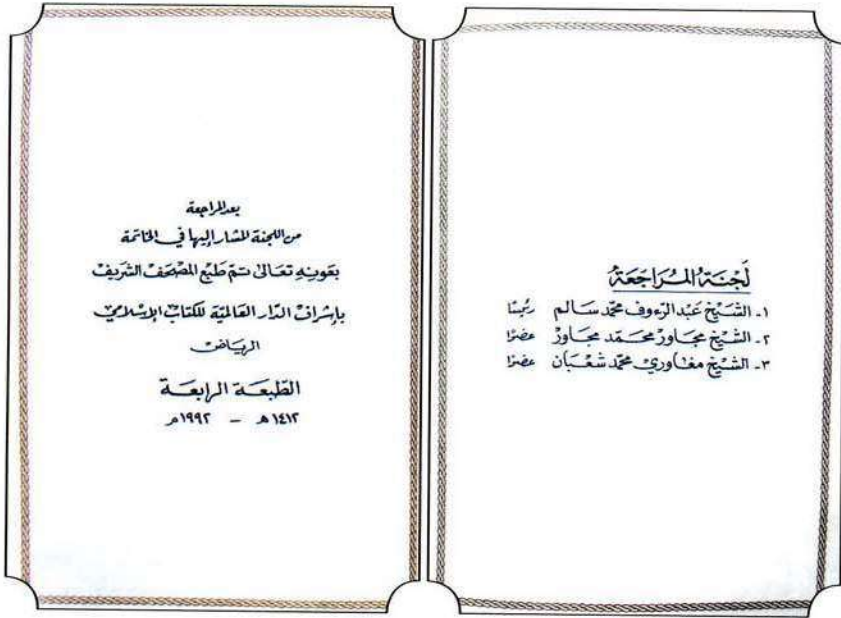 لَجْنَةُ المُرَاجَعَةِ
١ـ الشَّيْخ عَبْد الرَّءوف محمّد سَالم رئيسًا
٢ـ الشَّيْخ مجَاورْ محَمَّد مجَاورْ عضوًا
٣ـ الشَّيْخ مغَاوري محمّد شَعْبَان عضوًا
بعد المراجعة
من اللجنة المشار إليها في الخاتمة
بعَونِهِ تعَالى تمّ طبْع المصْحَف الشريف
بإشراف الدّار العَالميَّة للكتابْ الإسْلامي
الريَاض
الطّبعَة الرابعَة
١٤١٢ هـ – ١٩٩٢م